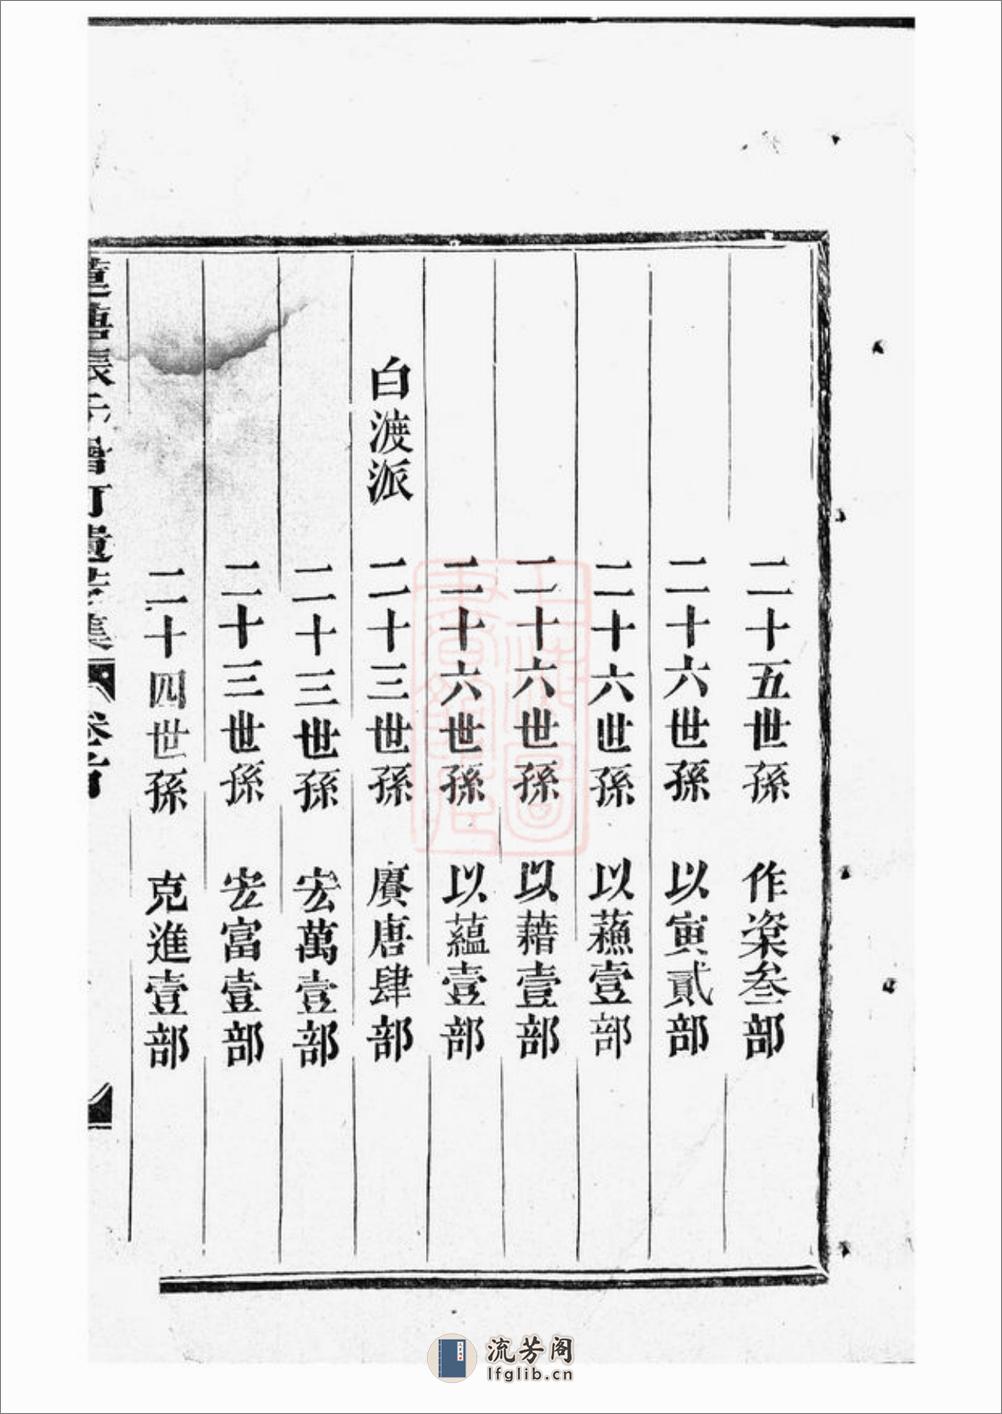 二十五世孫 作楽叁部
二十六世孫 以寅貳部
二十六世孫 以蘓壹部
二十六世孫 以藉壹部
二十六世孫 以蘊壹部
白渡派 二十三世孫 賡唐肆部
二十三世孫 宏萬壹部
二十三世孫 宏富壹部
二十四世孫 克進壹部
卷首
流芳阁
lfglib.cn